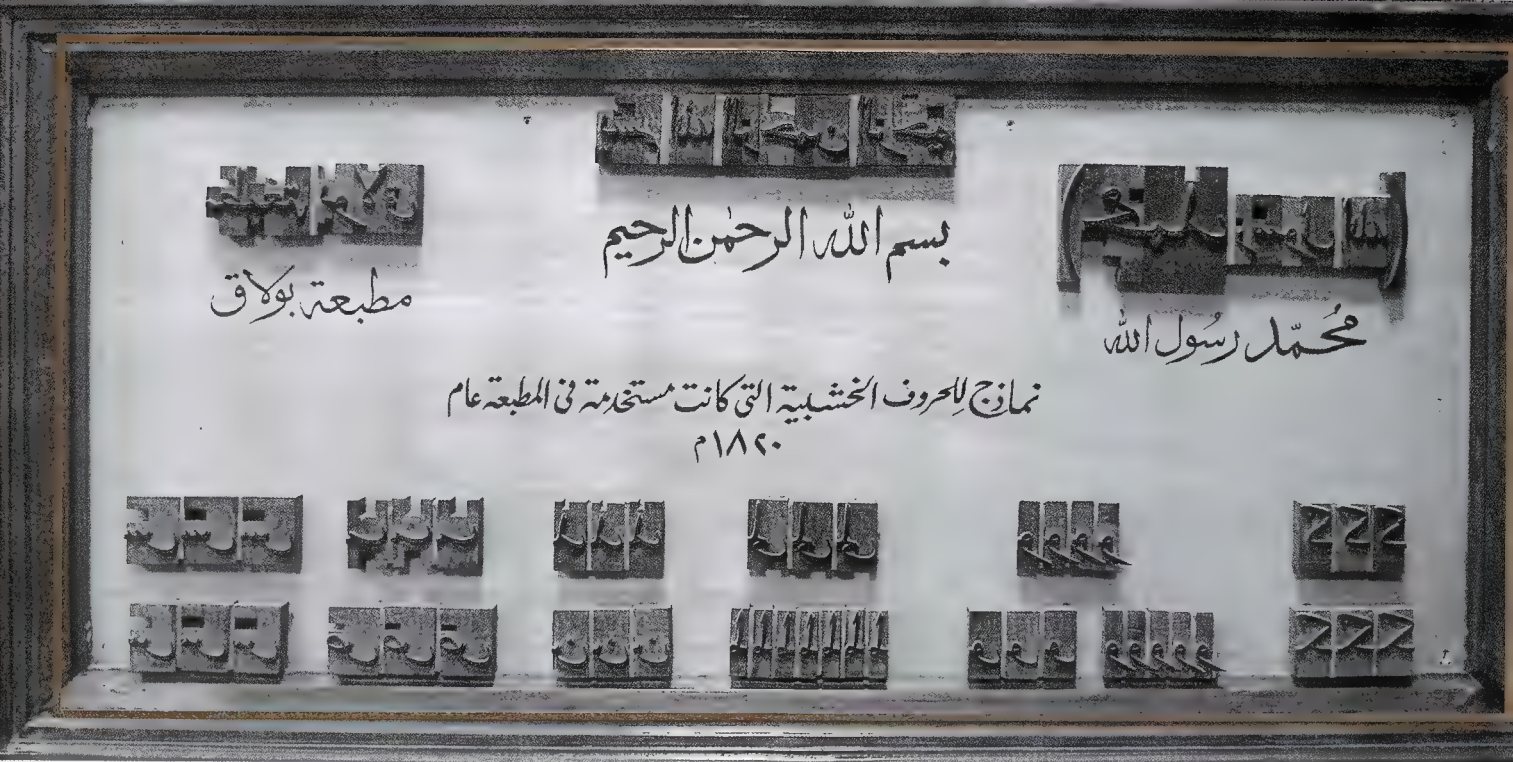 بسم الله الرحمٰن الرحيم
مُحمّد رسُول الله
مطبعة بولاق
نماذج لِلحروف الخشبية التى كانت مستخدمة فى المطبعة عام
١٨٢٠م